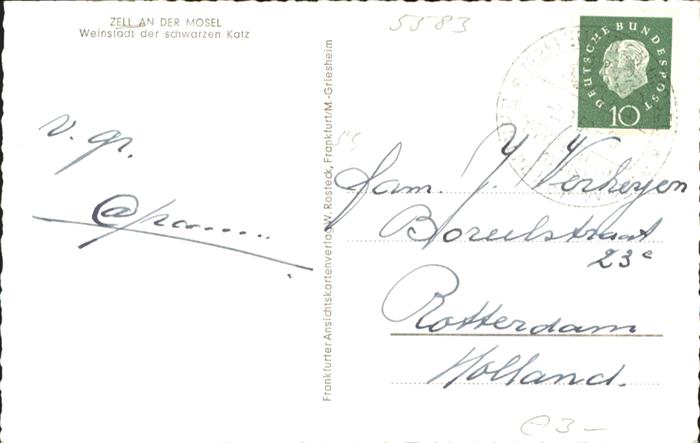 ZELL AN DER MOSEL
Weinstadt der schwarzen Katz
5583
v. gr.
Frankfurter Ansichtskartenverlag W. Rosteck, Frankfurt/M.-Griesheim
DEUTSCHE BUNDESPOST
10
Fam. J. Verheyen
Boreelstraat
23c
Rotterdam
Holland.
e3-